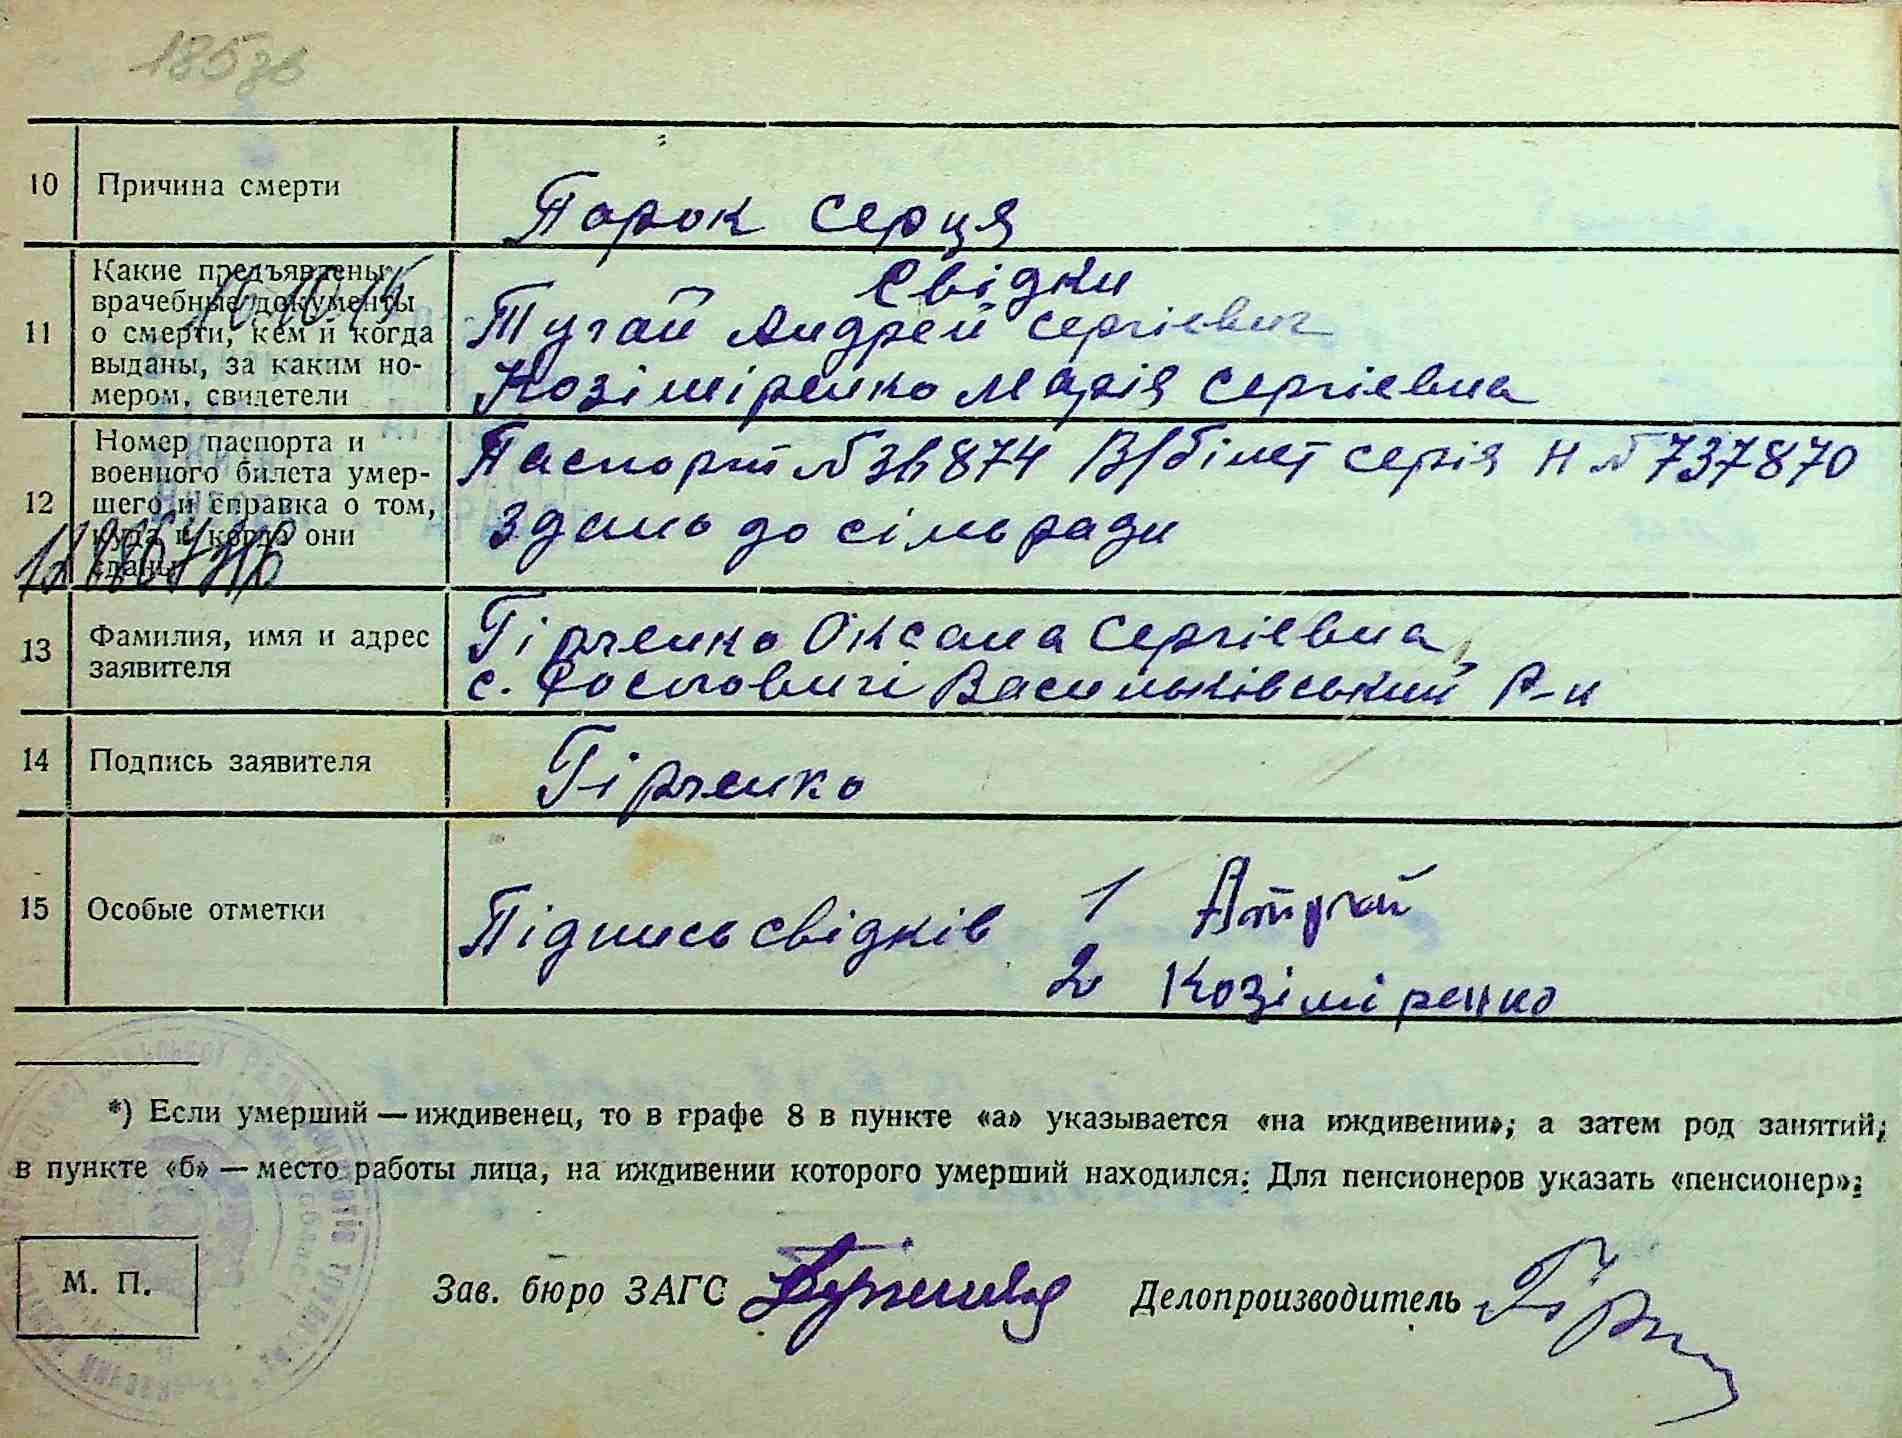 185зв
10 Причина смерти
Порок серця
11 Какие предъявлены
врачебные документы
о смерти, кем и когда
выданы, за каким но-
мером, свидетели
Свідки
Тугай Андрей Сергієвич
Козіміренко Марія Сергієвна
12 Номер паспорта и
военного билета умер-
шего и справка о том,
куда и когда они
сданы
Паспорт № 874 В/білет серія Н № 737870
здано до сільради
13 Фамилия, имя и адрес
заявителя
Гірченко Оксана Сергієвна,
с. Фостовичі Васильківський р-н
14 Подпись заявителя
Гірченко
15 Особые отметки
Підпись свідків 1 Атугай
2 Козіміренко
*) Если умерший — иждивенец, то в графе 8 в пункте «а» указывается «на иждивении»; а затем род занятий;
в пункте «б» — место работы лица, на иждивении которого умерший находился. Для пенсионеров указать «пенсионер».
М. П.
Зав. бюро ЗАГС
Делопроизводитель